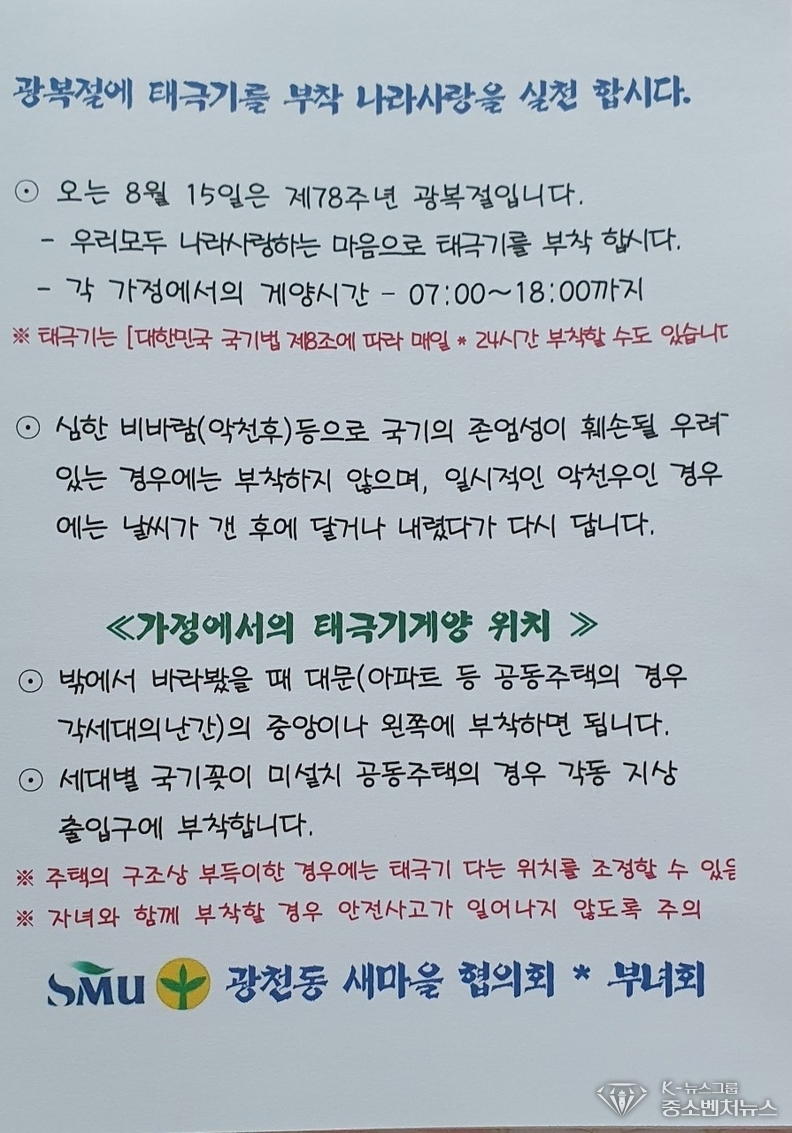 광복절에 태극기를 부착 나라사랑을 실천 합시다.
⊙ 오는 8월 15일은 제78주년 광복절입니다.
- 우리모두 나라사랑하는 마음으로 태극기를 부착 합시다.
- 각 가정에서의 게양시간 - 07:00~18:00까지
※ 태극기는 [대한민국 국기법 제8조에 따라 매일 * 24시간 부착할 수도 있습니
⊙ 심한 비바람(악천후)등으로 국기의 존엄성이 훼손될 우려
있는 경우에는 부착하지 않으며, 일시적인 악천우인 경우
에는 날씨가 갠 후에 달거나 내렸다가 다시 답니다.
≪가정에서의 태극기게양 위치 ≫
⊙ 밖에서 바라봤을 때 대문(아파트 등 공동주택의 경우
각세대의난간)의 중앙이나 왼쪽에 부착하면 됩니다.
⊙ 세대별 국기꽂이 미설치 공동주택의 경우 각동 지상
출입구에 부착합니다.
※ 주택의 구조상 부득이한 경우에는 태극기 다는 위치를 조정할 수 있음
※ 자녀와 함께 부착할 경우 안전사고가 일어나지 않도록 주의
SMU 광천동 새마을 협의회 * 부녀회
K-뉴스그룹
중소벤처뉴스